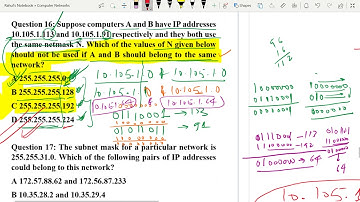 Rahul's Notebook » Computer Networks
Question 16: Suppose computers A and B have IP addresses
10.105.1.113 and 10.105.1.91 respectively and they both use
the same netmask N. Which of the values of N given below
should not be used if A and B should belong to the same
network?
A 255.255.255.0
B 255.255.255.128
C 255.255.255.192
D 255.255.255.224
10.105.1.0
10.105.1.0
10.105.1.64
10.105.1.64
01110001 → 113
01011011 → 91
96
16
112
10000000
01110001
01110001 - 113
11000000 - 192
01000000 → 64
64
10.105.
Question 17: The subnet mask for a particular network is
255.255.31.0. Which of the following pairs of IP addresses
could belong to this network?
A 172.57.88.62 and 172.56.87.233
B 10.35.28.2 and 10.35.29.4